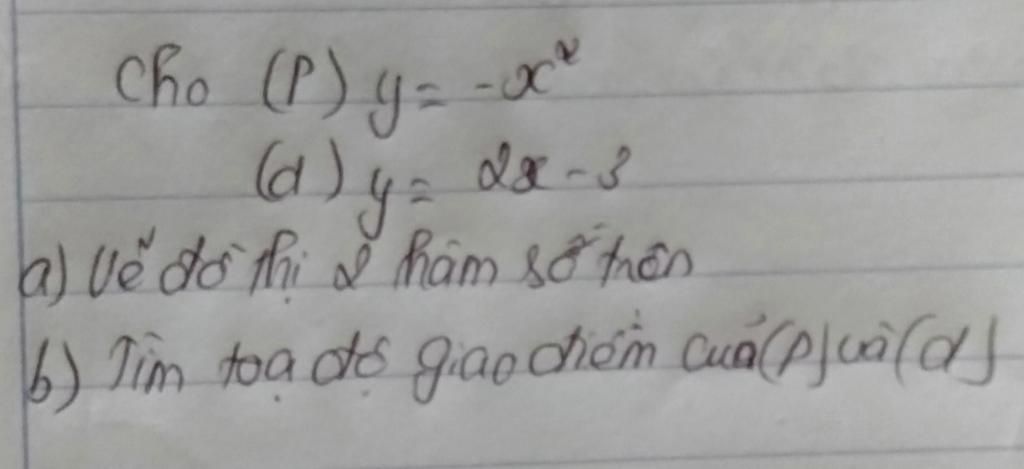 Cho (P) y = -x²
(d) y = 2x - 3
a) Vẽ đồ thị 2 hàm số trên
b) Tìm toạ độ giao điểm của (P) và (d)